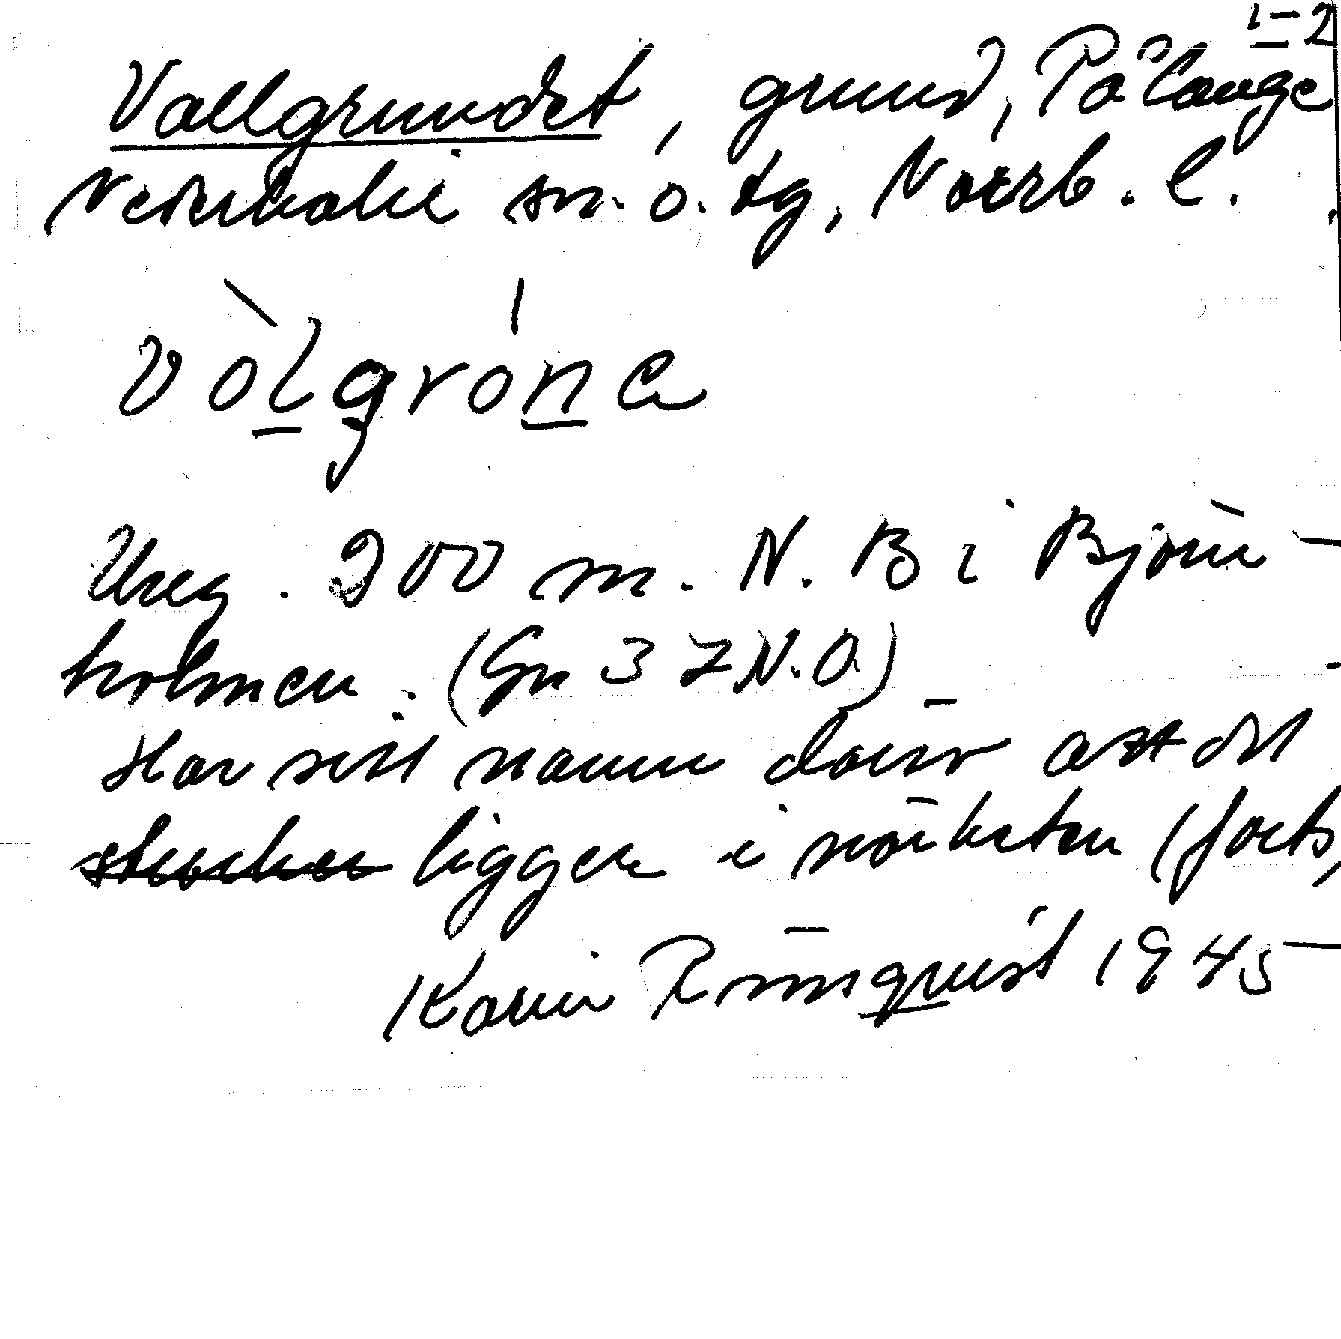 1-2
Vallgrundet, grund, Påläng
Nederkalix sn. o. tg, Norrb. l.
vòlgróne
Ung. 200 m. N. B i Björn-
holmen. (Gn 37 N.O)
Har sitt namn därav att det
ligger i närheten (forts,
Karin Rönnquist 1945